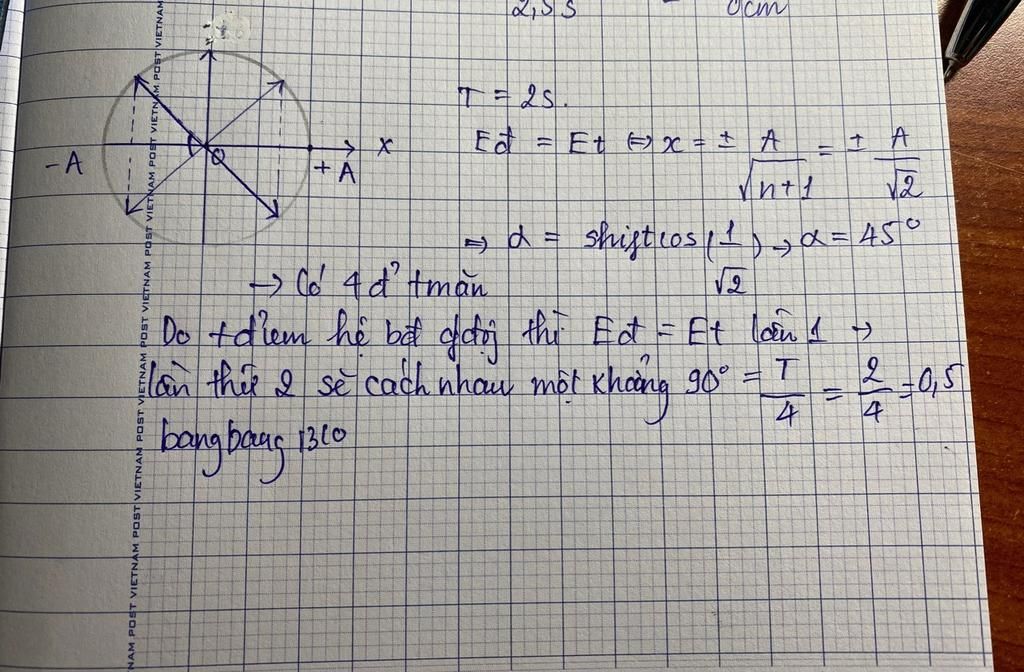 2,5s = 0cm
-A O +A x
T = 2s.
Eđ = Et ⇔ x = ± A/√(n+1) = ± A/√2
⇒ α = shift cos (1/√2) → α = 45°
→ Có 4 đ' tmãn
Do tđiểm hệ bđ gđộ thì Eđ = Et lần 1 →
lần thứ 2 sẽ cách nhau một khoảng 90° = T/4 = 2/4 = 0,5
bangbang
VIETNAM POST VIETNAM POST VIETNAM POST VIETNAM POST VIETNAM POST